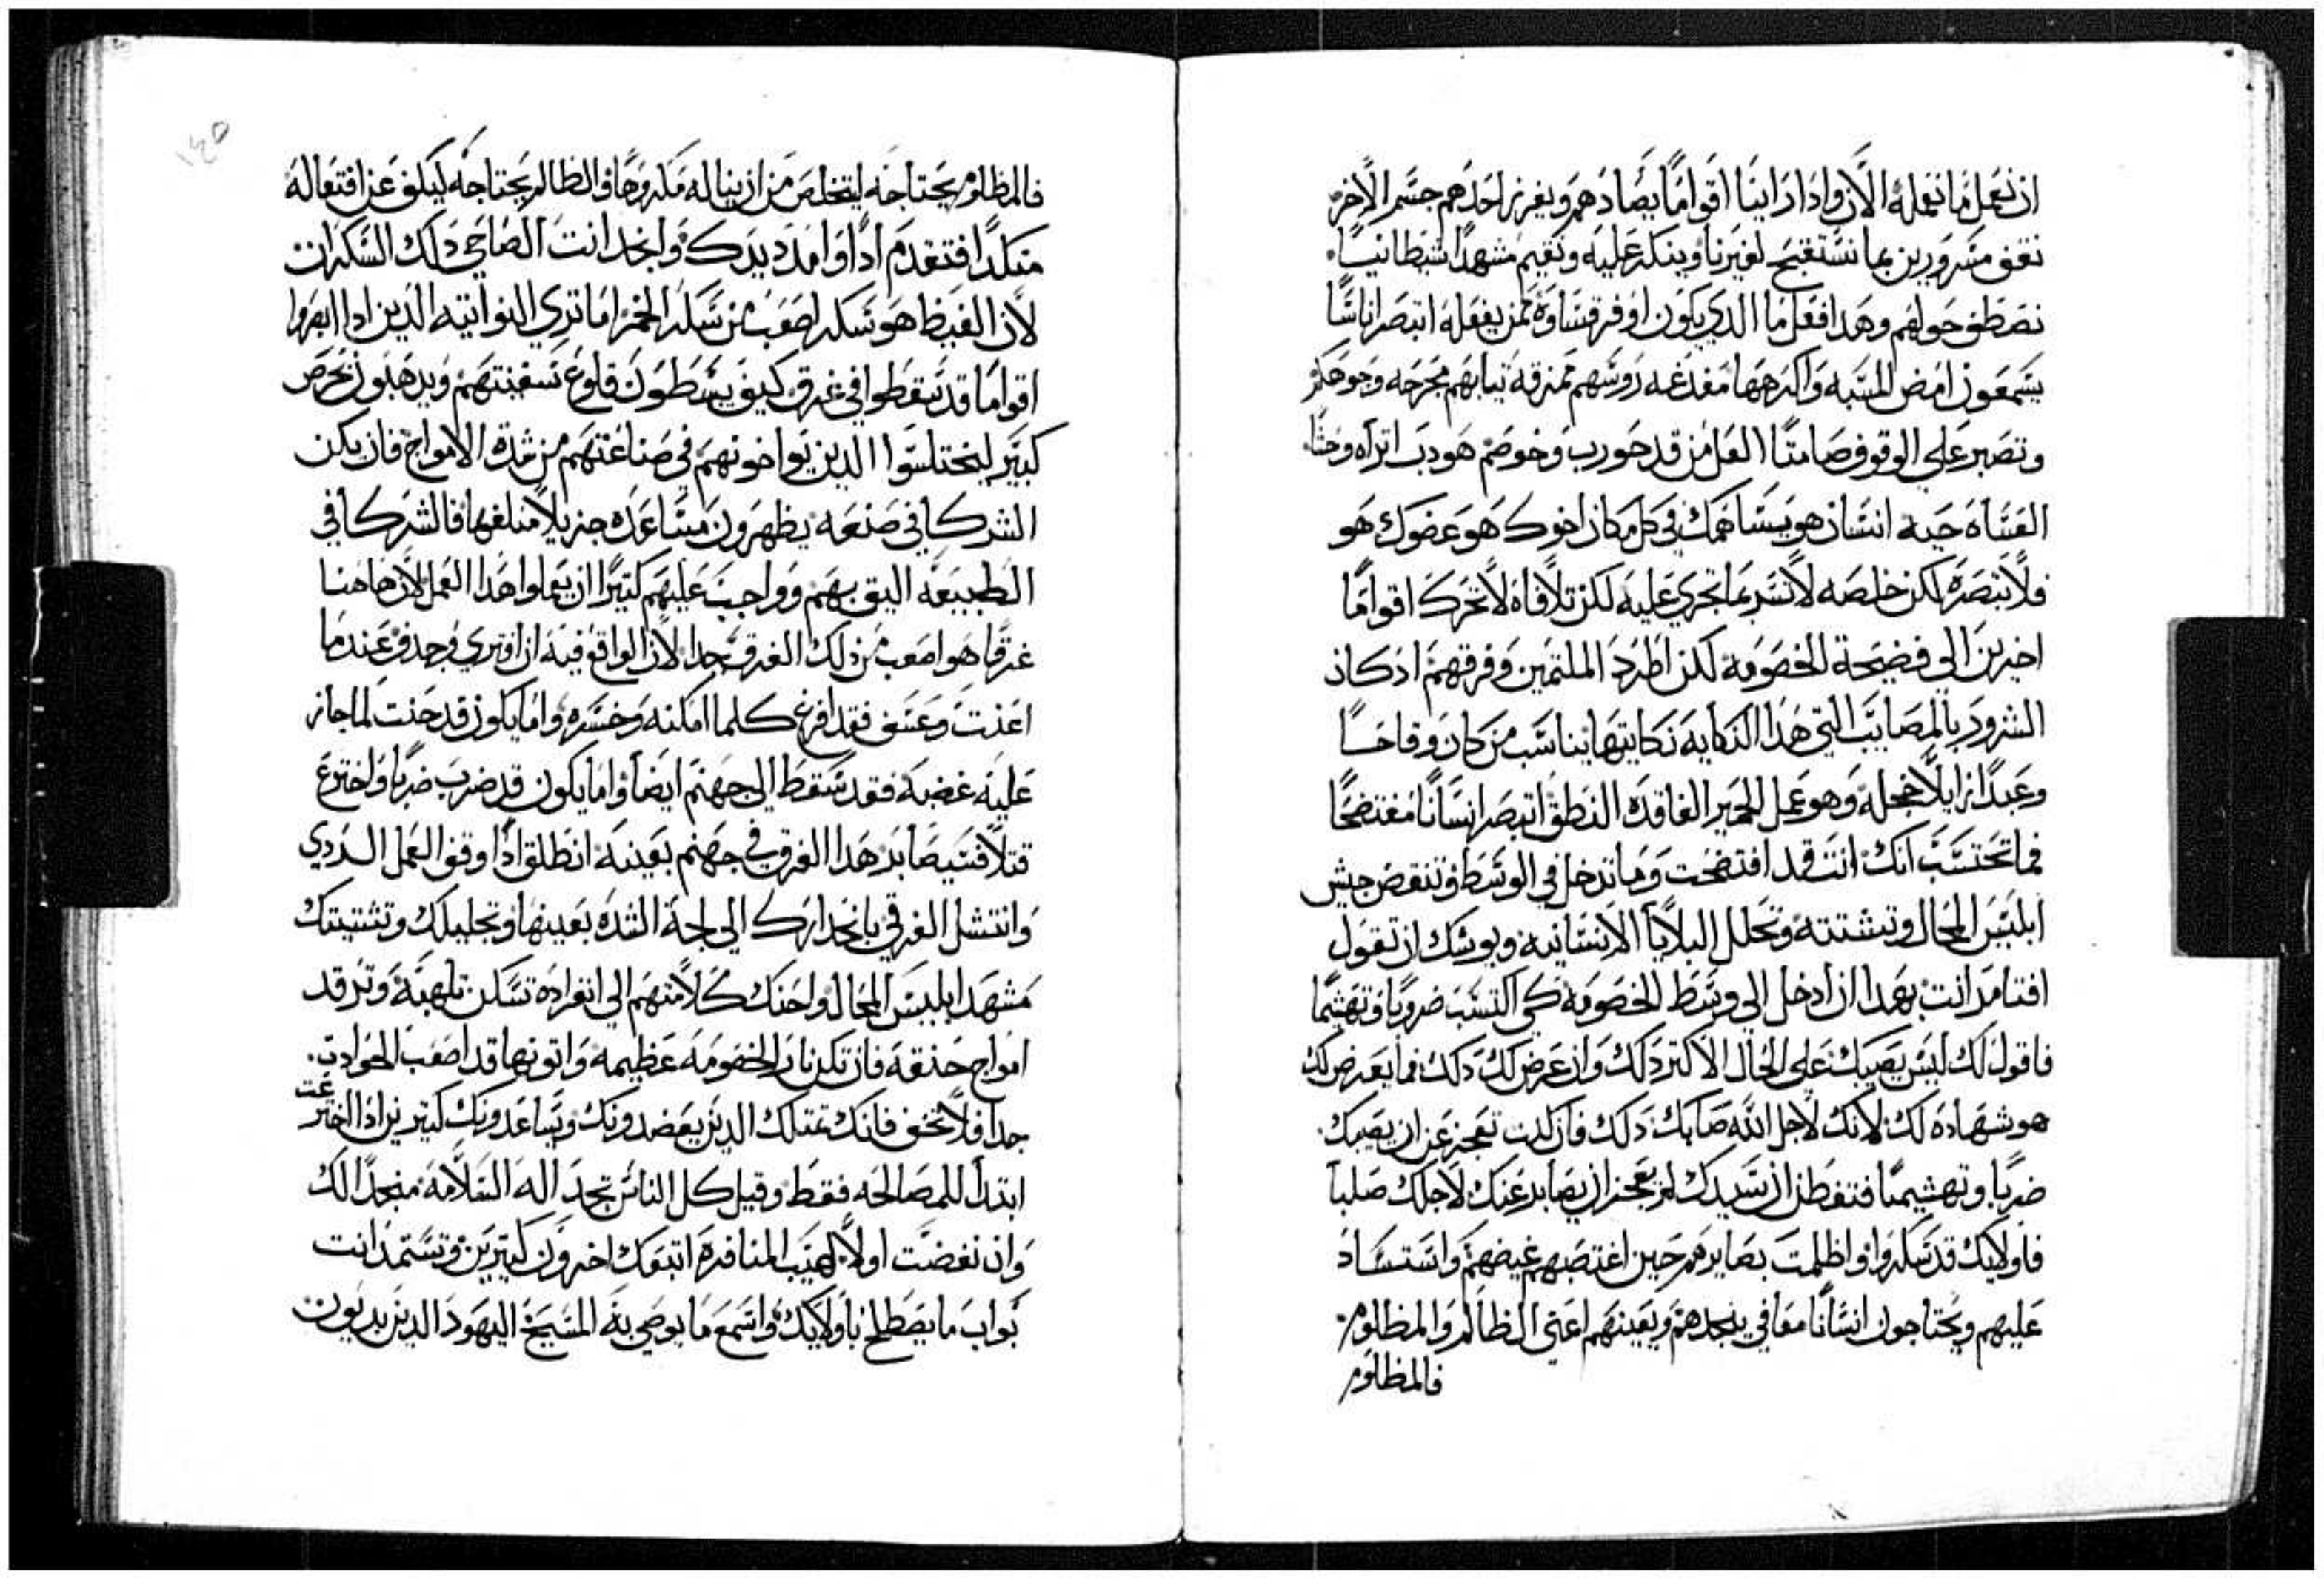 ان نعمل ما نعمله الان واذا راينا اقواما يصادهم ويغرز احدهم جسم الاخر
نقف مسرورين بما نستقبح لغيرنا وينكر عليه ونقيم مشهدا شيطانيا
نصطف حولهم وهدا فعل ما الدي يكون اوفر قساوه ممن يفعله اتبصر اناسًا
يشتمعون امض المسبه واكرهها مفدغه روسهم ممزقه تيابهم مجرحه وجوهكم
وتصبر علي الوقوف صامتًا العل من قد حورب وخوصم هو دب اتراه وحشا
العساه حيه انسان هو يساهمك في كل مكان اخوك هو عضوك هو
فلا تبصره لكن خلصه لا تسر بما تجري عليه لكن تلافاه لا تحرك اقواما
اخرين الي فضيحة الخصومه لكن اطرد الملتمين وفرقهم اذ كان
السرور بالمصايب التي هذا النكايه نكايتها يناسب من كان وقاحًا
وعبدا زايلا خجله وهو عمل الحمير الفاقده النطق اتبصر انسانا مفتضحًا
فما تحتسب انك انت قد افتضحت وما تدخل في الوسط وتنقض جيش
ابليس المحال وتشتته وتحلل البلايا الانسانيه ويوشك ان تقول
افتامر انت بهدا ان ادخل الي وسط الخصومه كي اكتسب ضروبا وتهشيما
فاقول لك ليس يصيبك علي الحال الاكتر دلك وان عرض لك دلك فما يعرض لك
هو شهاده لك لانك لاجل الله صابك دلك فان كنت تعجز عن ان يصيبك
ضربا وتهشيما فتفطن ان سيدك لم يعجز ان يصابر عنك لاجلك صلبا
فاوليك قد سكروا واظلمت بصايرهم حين اغتصبهم غيضهم واستساد
عليهم ويحتاجون انسانا معافي ينجدهم ويعينهم اعني الظالم والمظلوم
فالمظلوم
فالمظلوم يحتاجه ليتخلص من ان يناله مكروها والظالم يحتاجه ليكف عن افتعاله
منكدا فتقدم ادا وامدد يدك وانجد انت الصاحي دلك السكران
لان الغيظ هو سكر اصعب من سكر الخمر اما تري النواتيه الدين ادا ابصروا
اقواما قد سقطوا في غرق كيف يبسطون قلوع سفينتهم ويدهبون بحرص
كبير ليختلسوا الدين يواخونهم في صناعتهم من شدة الامواج فان يكن
الشركا في صنعه يظهرون مساعده جزيلا مبلغها فالشركا في
الطبيعه اليق بهم وواجب عليهم كتيرا ان يعملوا هدا العمل لان هاهنا
غرقا هو اصعب من دلك الغرق جدا لان الواقع فيه ان افتري وجدف عندما
اعنت وعسف فقد افرغ كلما امكنه وخسره واما يكون قد حنت لما جاز
عليه غضبه فقد سقط الي جهنم ايضا واما يكون قد ضرب ضربا واخترع
قتلا فسيصابر هدا الغرق في جهنم بعينه انطلق ادا وقف العمل الردي
وانتشل الغرقي بانحدارك الي لجة الشده بعينها وتحليلك وتشتيتك
مشهد ابليس المحال واحنك كلا منهم الي انفراده تسكن تلهبه وترقد
امواج حنقه فان تكن نار الخصومه عظيمه واتونها قد اصعب الحوادت
جدا فلا تخف فانك تمتلك الدين يعضدونك ويساعدونك كتيرين ادا اخترعت
ابتدأ للمصالحه فقط وقبل كل الناس تجد اله السلامه منجدا لك
وان نفضت اولا لهيب المنافره اتبعك اخرون كتيرين وتستمد انت
تواب ما يصطلح باوليك واسمع ما يوصي به المسيح اليهود الدين يدبون